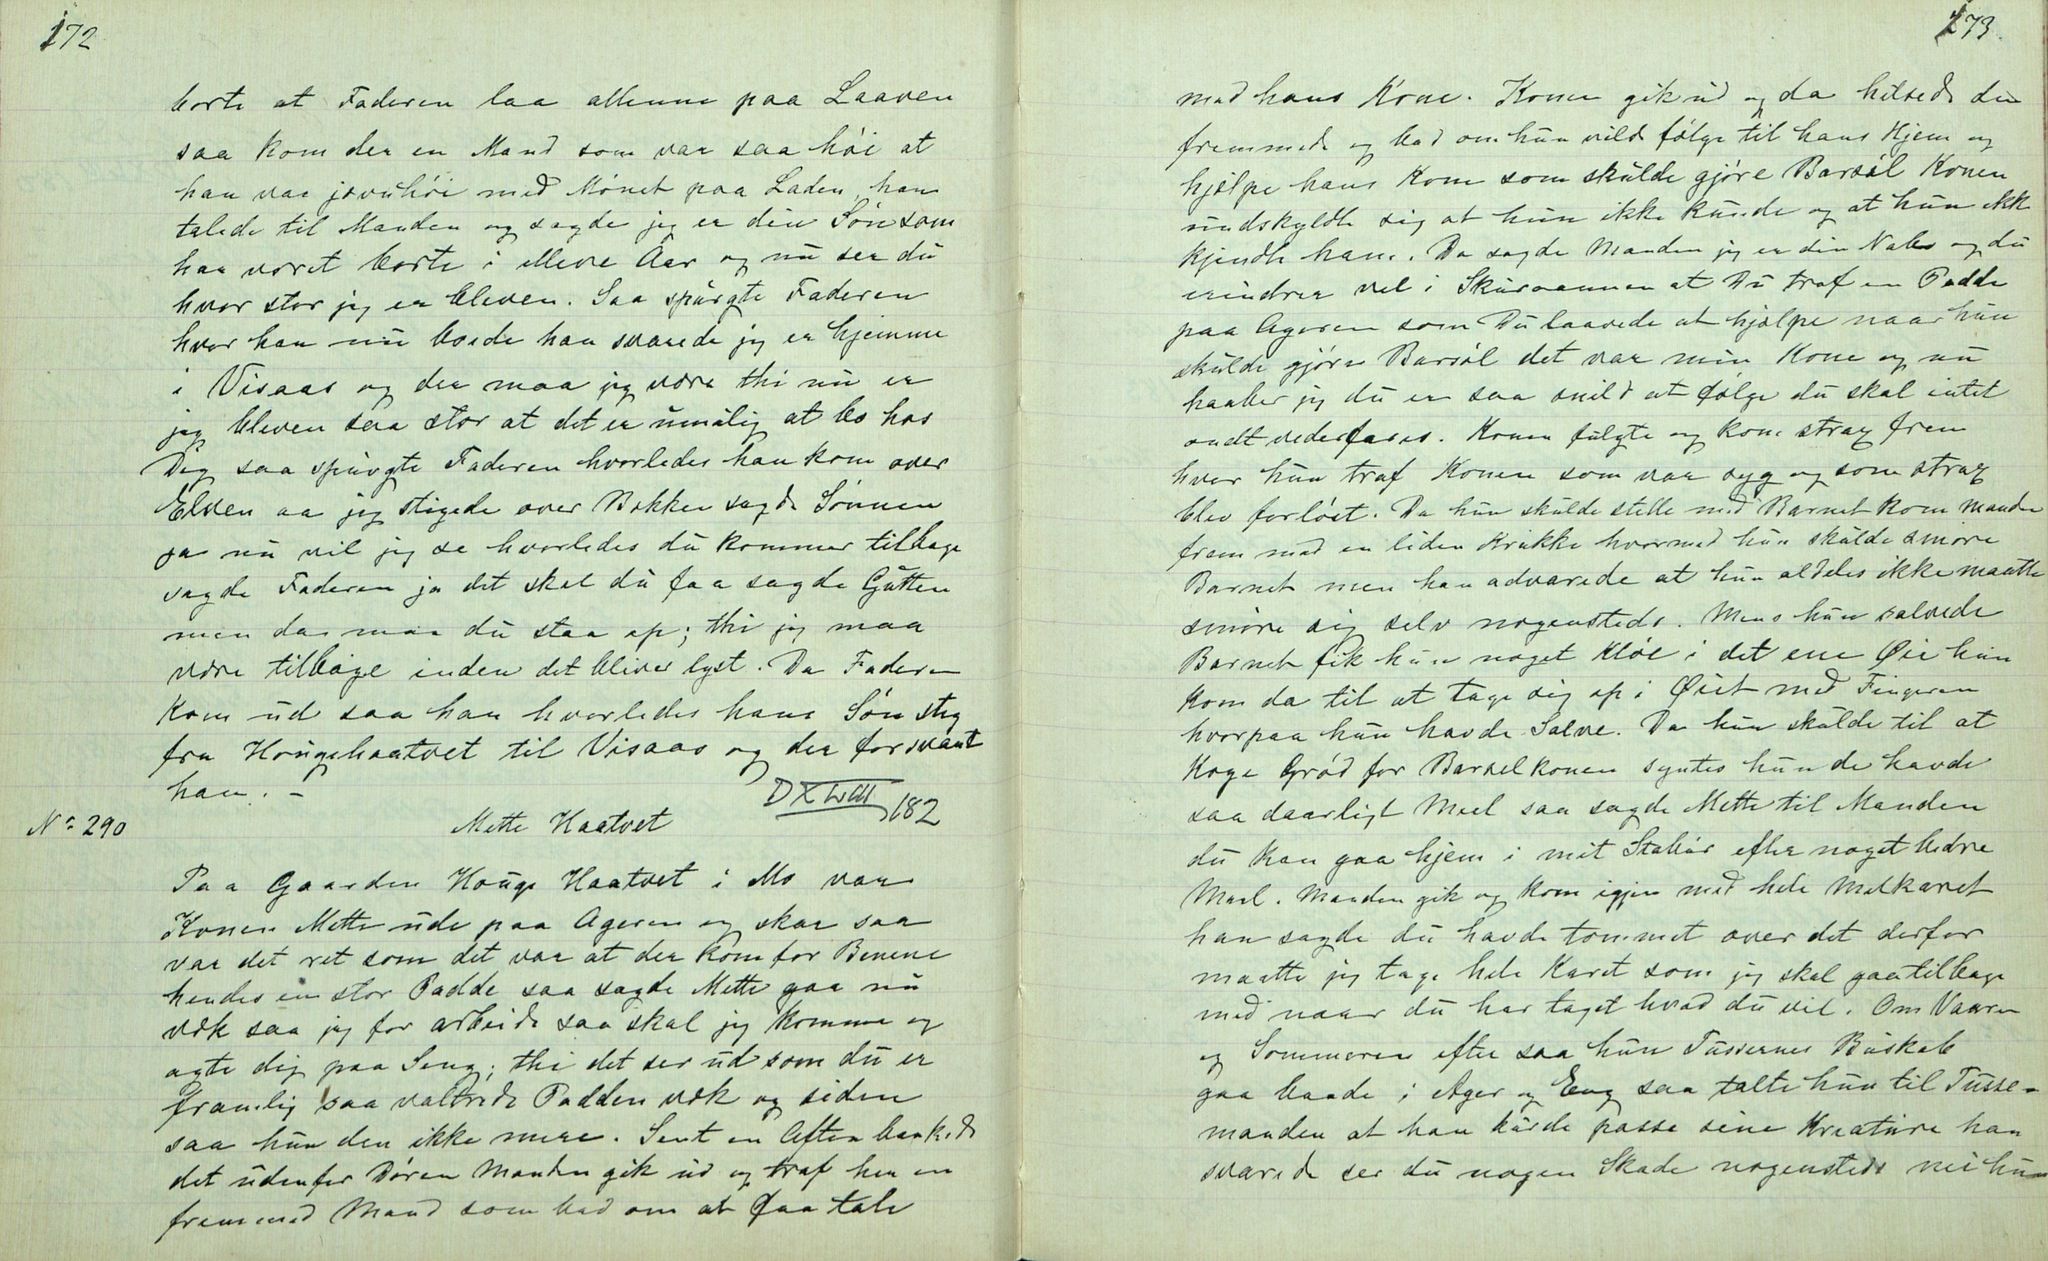 172
borte at Faderen laa allenne paa Laaven
saa kom der en Mand som var saa höi at
han var jevnhöi med Mönet paa Laden, han
talede til Manden og sagde jeg er din Sön som
har været borte i elleve Aar og nu ser du
hvor stor jeg er bleven. Saa spurgte Faderen
hvor han nu boede han svarede jeg er hjemme
i Visaas og der maa jeg være thi nu er
jeg bleven saa stor at det er umulig at bo hos
Dig saa spurgte Faderen hvorledes han kom over
Elven aa jeg stigede over Bækken sagde Sönnen
ja nu vil jeg se hvorledes du kommer tilbage
sagde Faderen ja det skal du faa sagde Gutten
men da maa du staa op; thi jeg maa
være tilbage inden det bliver lyst. Da Faderen
kom ud saa han hvorledes hans Sön steg
fra Hougehaatvet til Visaas og der forsvant
han. –
182
No 290
Mette Haatvet
Paa Gaarden Houge Haatvet i Mo var
Konen Mette ude paa Ageren og skar saa
var det ret som det var at der kom for Benene
hendes en stor Padde saa sagde Mette gaa nu
væk saa jeg for arbeide saa skal jeg komme og
agte dig paa Seng; thi det ser ud som du er
framlig saa valtrede Padden væk og siden
saa hun den ikke mere. Sent en Aften bankede
det udenfor Dören Manden gik ud og traf her en
fremmed Mand som bad om at faa tale
173.
med hans Kone. Konen gik ud og da hilsede den
fremmede og bad om hun vilde fölge til hans Hjem og
hjælpe hans Kone som skulde gjöre Barsöl Konen
undskyldte sig at hun ikke kunde og at hun ikke
kjendte ham. Da sagde Manden jeg er din Nabo og du
erindrer vel i Skuraannen at Du traf en Padde
paa Ageren som Du laavede at hjælpe naar hun
skulde gjöre Barsöl det var min Kone og nu
haaber jeg du er saa snild at fölge du skal intet
ondt vederfares. Konen fulgte og kom strax frem
hvor hun traf Konen som var syg og som strax
blev forlöst. Da hun skulde stelle med Barnet kom Manden
frem med en liden Krukke hvormed hun skulde smöre
Barnet men han advarede at hun aldeles ikke maatte
smöre sig selv nogensteds. Mens hun salvede
Barnet fik hun noget Klöe i det ene Öie hun
kom da til at tage sig op i Öiet med Fingeren
hvorpaa hun havde Salve. Da hun skulde til at
koge Gröd for Barselkonen syntes hun de havde
saa daarligt Meel saa sagde Mette til Manden
du kan gaa hjem i mit Stabur efter noget bedre
Meel. Manden gik og kom igjen med hele Melkaret
han sagde du havde tommet over det derfor
maatte jeg tage hele Karet som jeg skal gaa tilbage
med naar du har taget hvad du vil. Om Vaaren
og Sommeren efter saa hun Tussernes Buskab
gaa baade i Ager og Eng saa talte hun til Tusse-
manden at han burde passe sine Kreature han
svarede ser du nogen Skade nogensteds nei hun